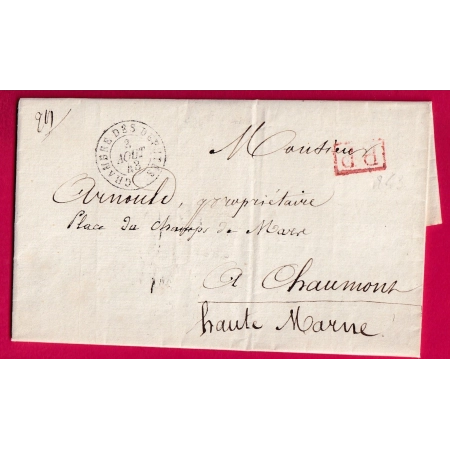 24
CHAMBRE DES DEPUTES
3
AOUT
42
Monsieur
P.P.
Arnould, propriétaire
Place du champs de Mars
A Chaumont
haute Marne